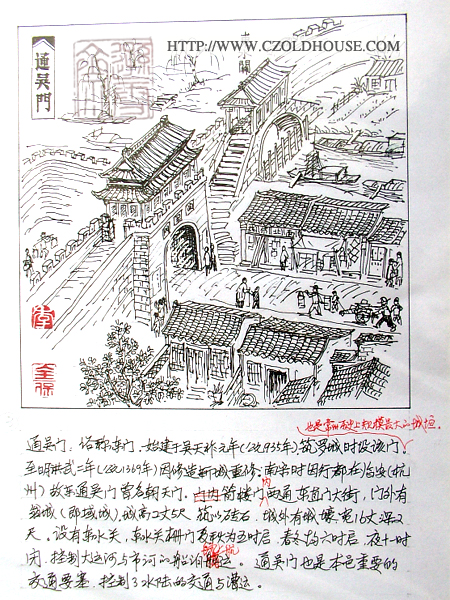 HTTP://WWW.CZOLDHOUSE.COM
通吴門
水關
也是常州历史上规模最大的城垣。
通吴门、俗称东门、始建于吴天祚元年(公元935年)筑罗城时设该门
至明洪武二年(公元1369年)因修造新城重修。南宋时因行都在临安(杭
州)故东通吴门曾名朝天门。门内街楼门两通东直门大街,门外有
瓮城(即域城),城高2丈5尺 筑以砖石 城外有城壕宽16丈深2
天。设有东水关、东水关栅门夏秋为五时启 春冬为六时启 夜十时
闭,控制大运河与市河的船泊航运。通吴门也是本邑重要的
交通要塞、控制了水陆的交通与漕运。